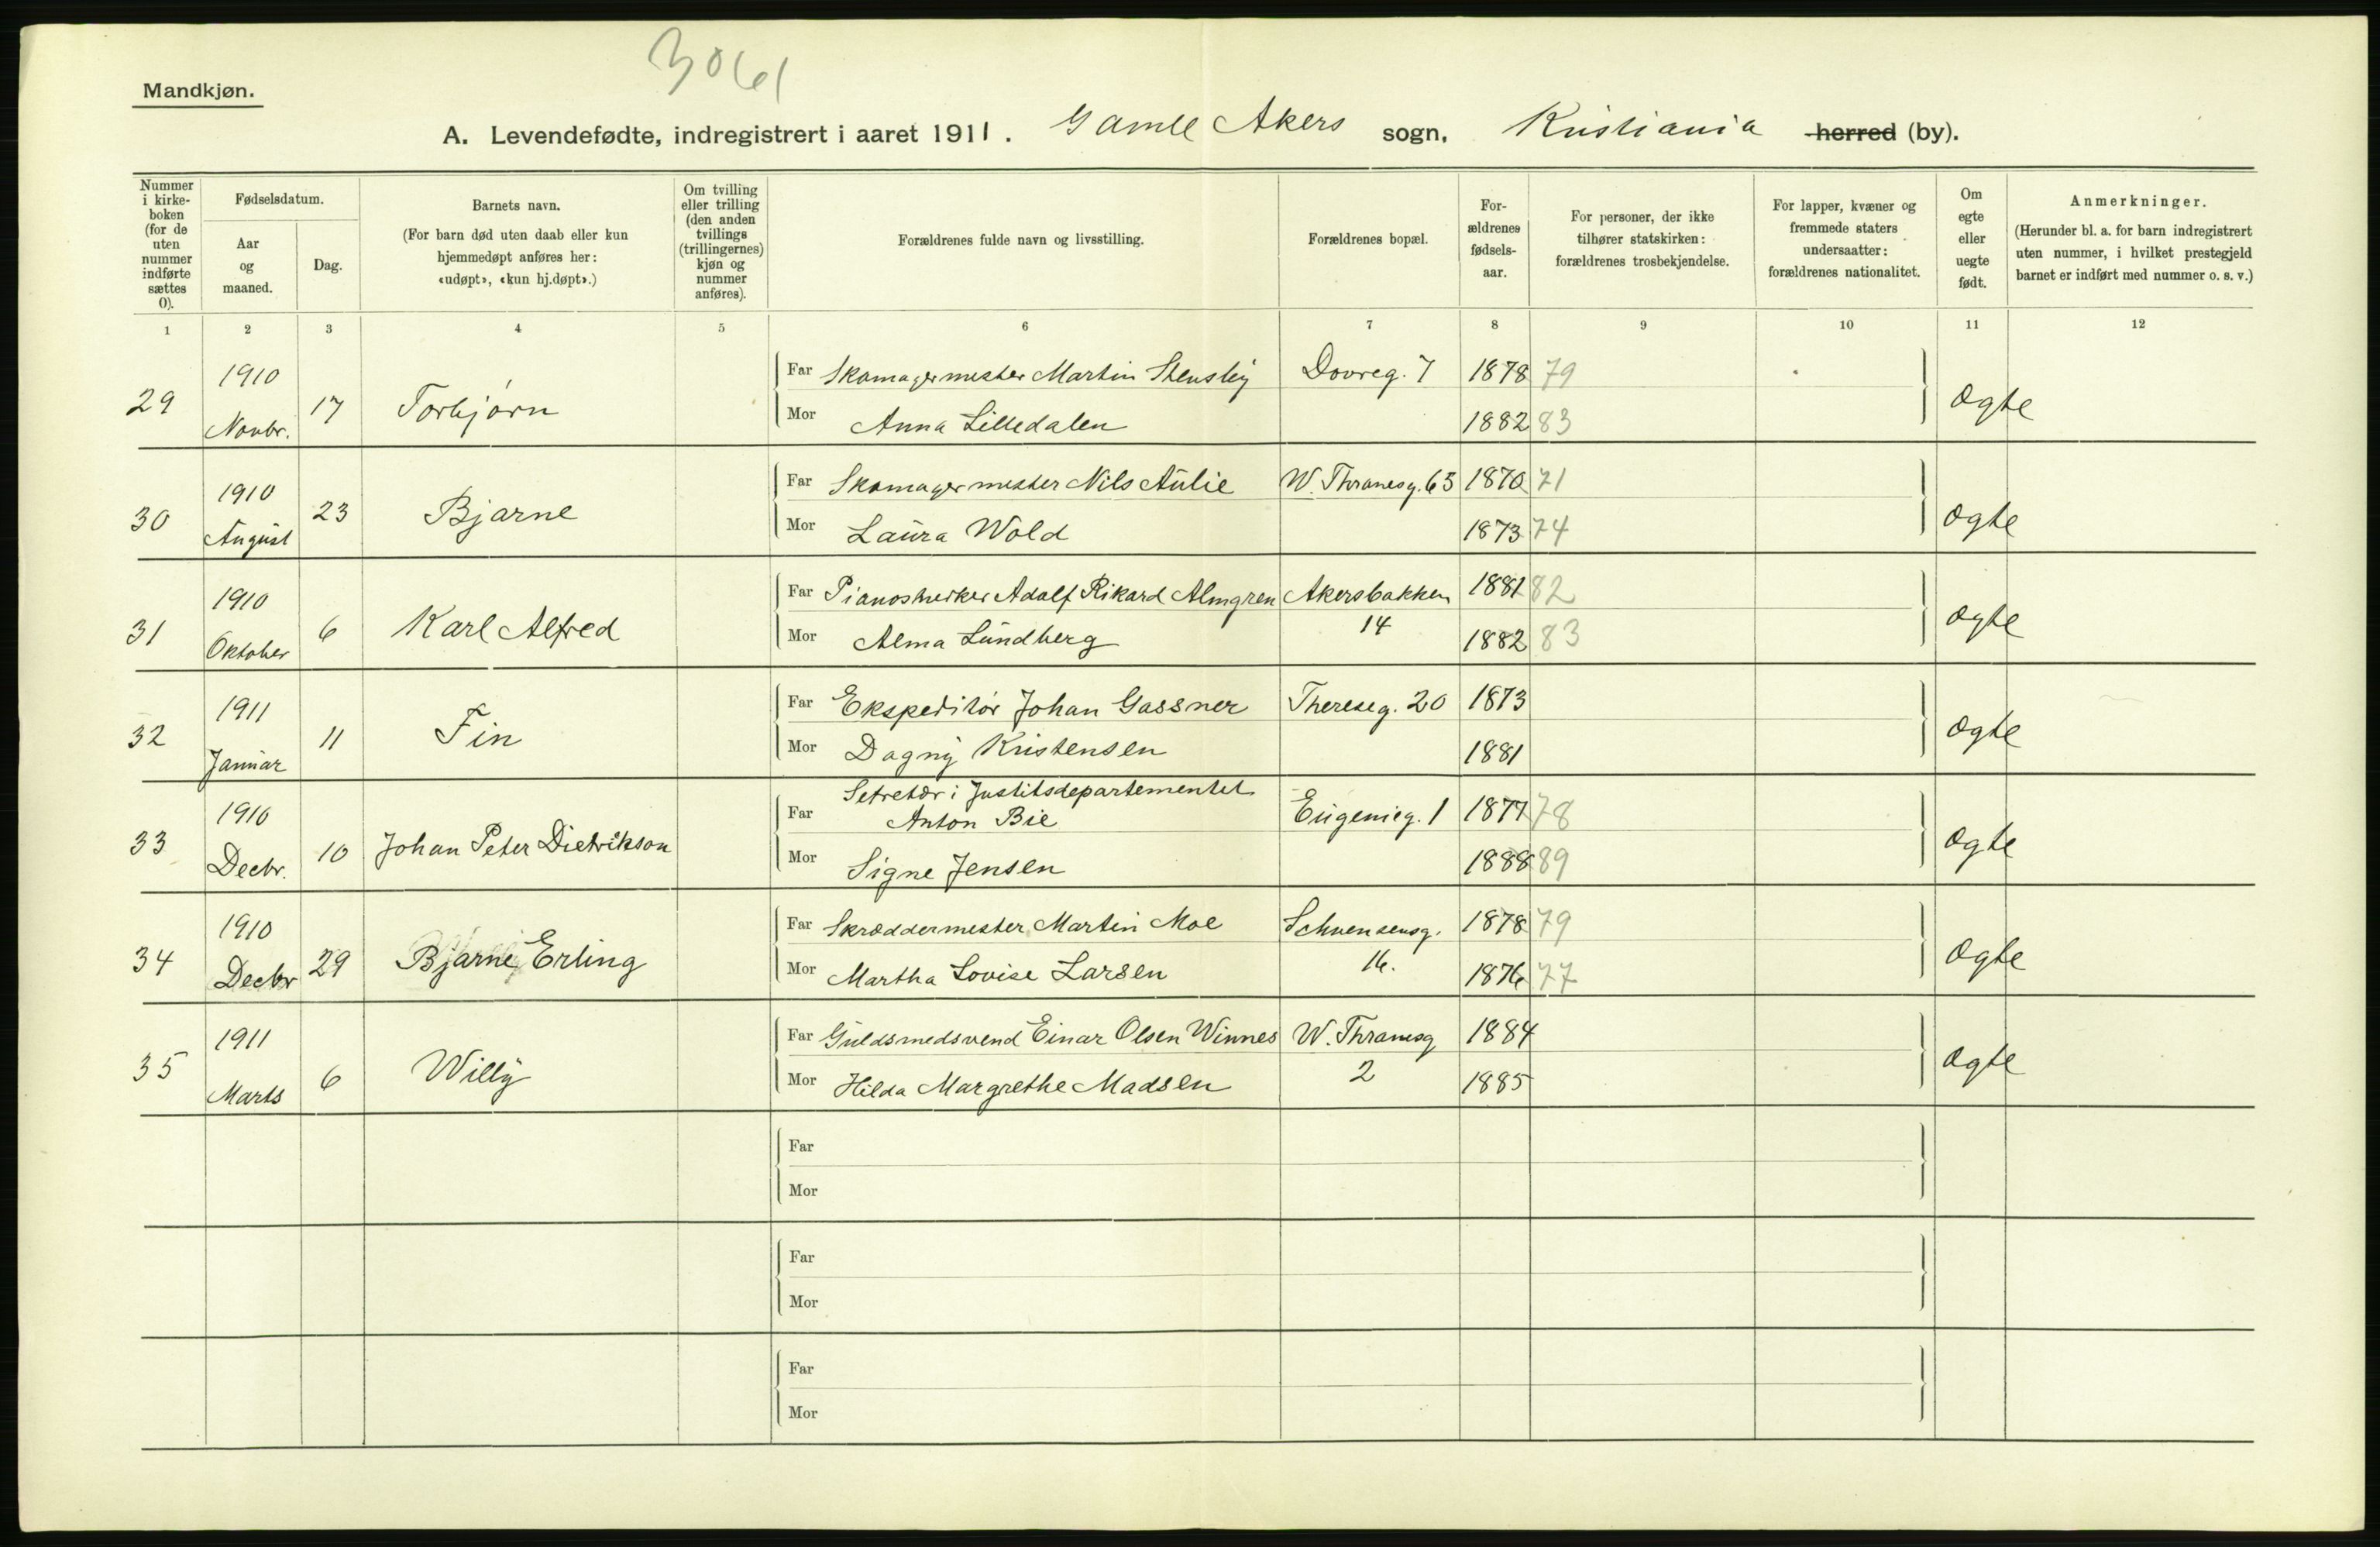 3061
Mandkjøn.
A. Levendefødte, indregistrert i aaret 1911. Gamle Akers sogn, Kristiania herred (by).
Nummer i kirke-boken (for de uten nummer indførte sættes 0).
Fødselsdatum.
Aar og maaned.
Dag.
Barnets navn.
(For barn død uten daab eller kun hjemmedøpt anføres her: «udøpt», «kun hj.døpt».)
Om tvilling eller trilling (den anden tvillings (trillingernes) kjøn og nummer anføres).
Forældrenes fulde navn og livsstilling.
Forældrenes bopæl.
For-ældrenes fødsels-aar.
For personer, der ikke tilhører statskirken: forældrenes trosbekjendelse.
For lapper, kvæner og fremmede staters undersaatter: forældrenes nationalitet.
Om egte eller uegte født.
Anmerkninger.
(Herunder bl. a. for barn indregistrert uten nummer, i hvilket prestegjeld barnet er indført med nummer o. s. v.)
1 2 3 4 5 6 7 8 9 10 11 12
29 1910 Novbr. 17 Torbjørn
Far Skomagermester Martin Stensby Dovreg. 7 1878 79
Mor Anna Lilledalen 1882 83 Ægte
30 1910 August 23 Bjarne
Far Skomagermester Nils Aulie W. Thranesg. 63 1870 71
Mor Laura Wold 1873 74 Ægte
31 1910 Oktober 6 Karl Alfred
Far Adolf Rikard Almgren Akersbakken 1881 82
Mor Alma Lundberg 14 1882 83 Ægte
32 1911 Januar 11 Fin
Far Ekspeditør Johan Gassner Thereseg. 20 1873
Mor Dagny Kristensen 1881 Ægte
33 1910 Decbr. 10 Johan Peter Dietrikson
Sekretær i Justitsdepartementet
Far Anton Bie Eugenieg. 1 1877 78
Mor Signe Jensen 1888 89 Ægte
34 1910 Decbr 29 Bjarne Erling
Far Skræddermester Martin Moe Schwensensg. 1878 79
Mor Martha Lovise Larsen 16. 1876 77 Ægte
35 1911 Marts 6 Willy
Far Guldsmedsvend Einar Olsen Winnes W. Thranesg 1884
Mor Hilda Margrethe Madsen 2 1885 Ægte
Far
Mor
Far
Mor
Far
Mor